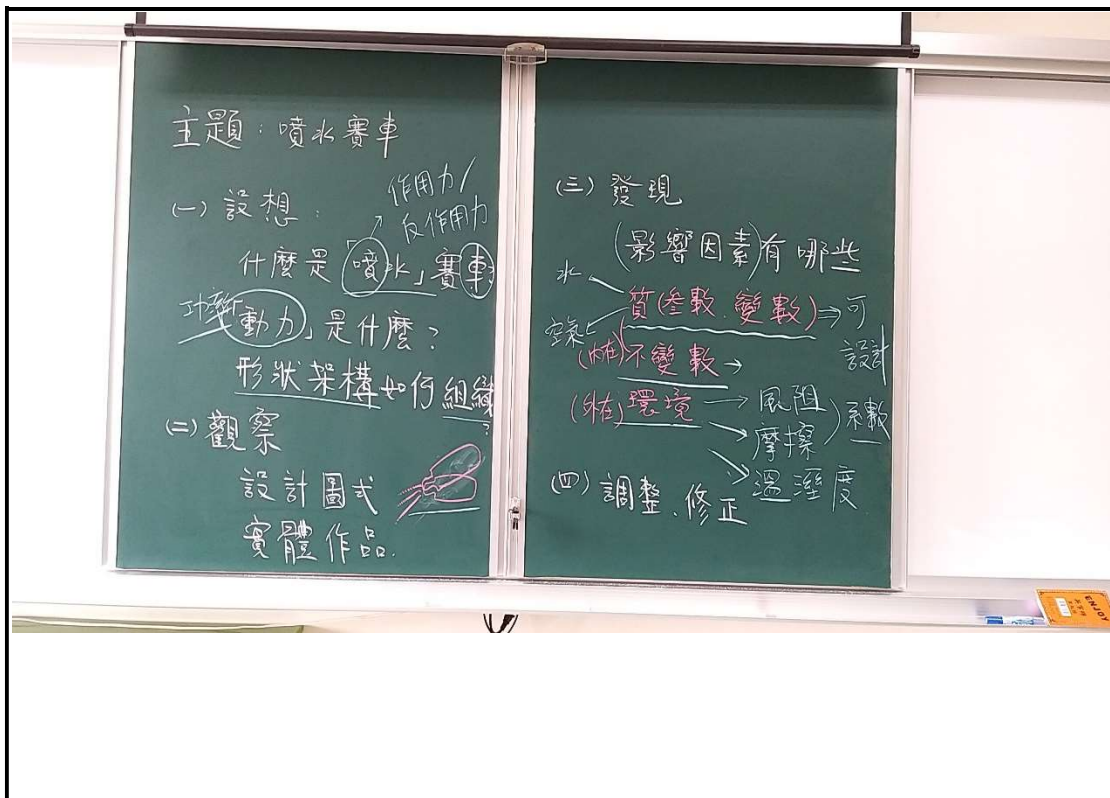 主題：噴水賽車
作用力/
反作用力
(一) 設想：
什麼是「噴水」賽車?
功率
「動力」是什麼？
形狀架構如何組織?
(二) 觀察
設計圖式
實體作品.
(三) 發現
(影響因素)有哪些
水
空氣
質(參數、變數)⇒可設計
(內在)不變數→
(外在)環境→風阻
摩擦)系數
溫溼度
(四) 調整、修正
ENJOY